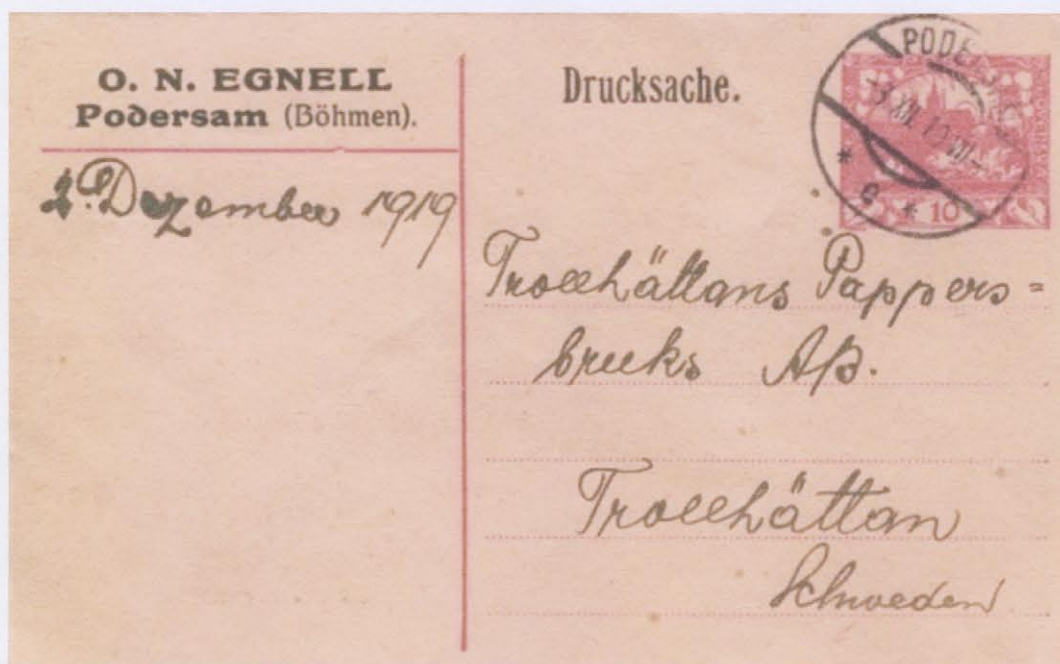 O. N. EGNELL
Podersam (Böhmen).
2. Dezember 1919
Drucksache.
10
Trollhättans Pappers=
bruks AB.
Trollhättan
Schweden